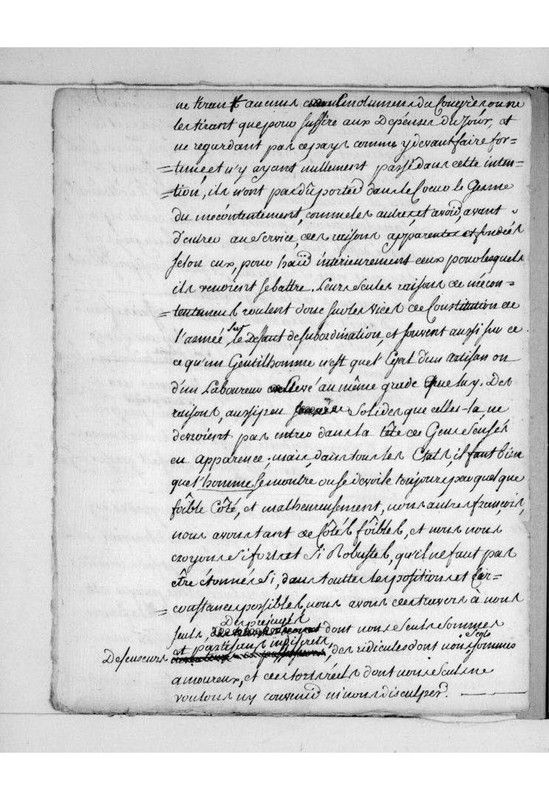 ne tirant aucuns émolumens du Congrès ou ne
les tirant que pour suffire aux Depenses du Jour, et
ne regardant pas ce pays comme y devant faire for=
=tune et n'y ayant nullement passé dans cette inten=
=tion, ils n'ont pas apporté dans le Coeur le Germe
du mécontentement, comme les autres et avoir, avant
d'entrer au service des raisons apparentes et fondées
selon eux, pour haïr intérieurement ceux pour lesquels
ils venoient se battre. Leurs seules raisons de mécon=
=tentement roulent donc sur les vices de Constitution de
l'armée sur le Défaut de subordination, et souvent aussi sur ce
ce qu'un Gentilhomme n'est que l'égal d'un artisan ou
d'un Laboureur élevé au même grade que luy. Des
raisons, aussi peu solides que celles-la, ne
devroient pas entrer dans la tête de Gens sensés
en apparence; mais, dans tous les Etats, il faut bien
que l'homme se montre ou se devoile toujours par quelque
foible Côté, et malheureusement, nous autres françois,
nous avons tant de Côtés foibles, et nous nous
croyons si forts et si Robustes, qu'il ne faut pas
être étonné si, dans toutes les positions et cir=
=constances possibles, nous avons des travers à nous
seuls, Des préjugés dont nous seuls sommes
Defenseurs et partisans indiscrets, des ridicules dont nous seuls sommes
amoureux, et des torts réels dont nous seuls ne
voulons ny convenir ni nous disculper.